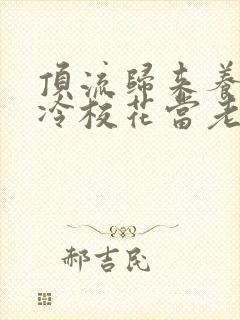 頂流歸來養
冷校花當老
郝吉民